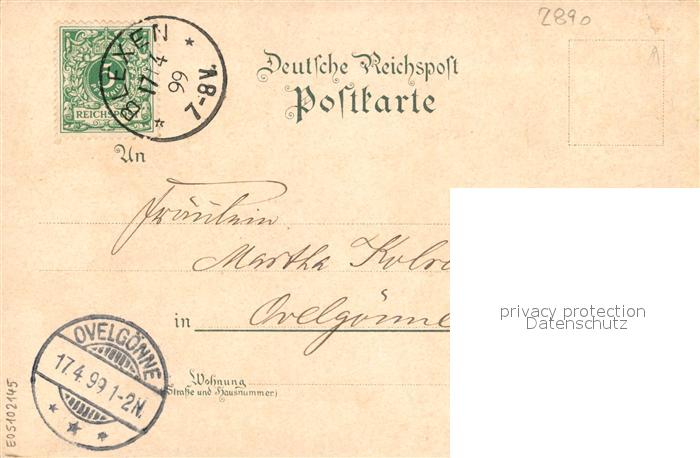 2890
BLEXEN
17 4
99
7-8V
5
REICHSPOST
Deutsche Reichspost
Postkarte
An
Fräulein
Martha
in Ovelgönne
privacy protection
Datenschutz
OVELGÖNNE
17.4.99 1-2N.
Wohnung
(Straße und Hausnummer)
E05102145